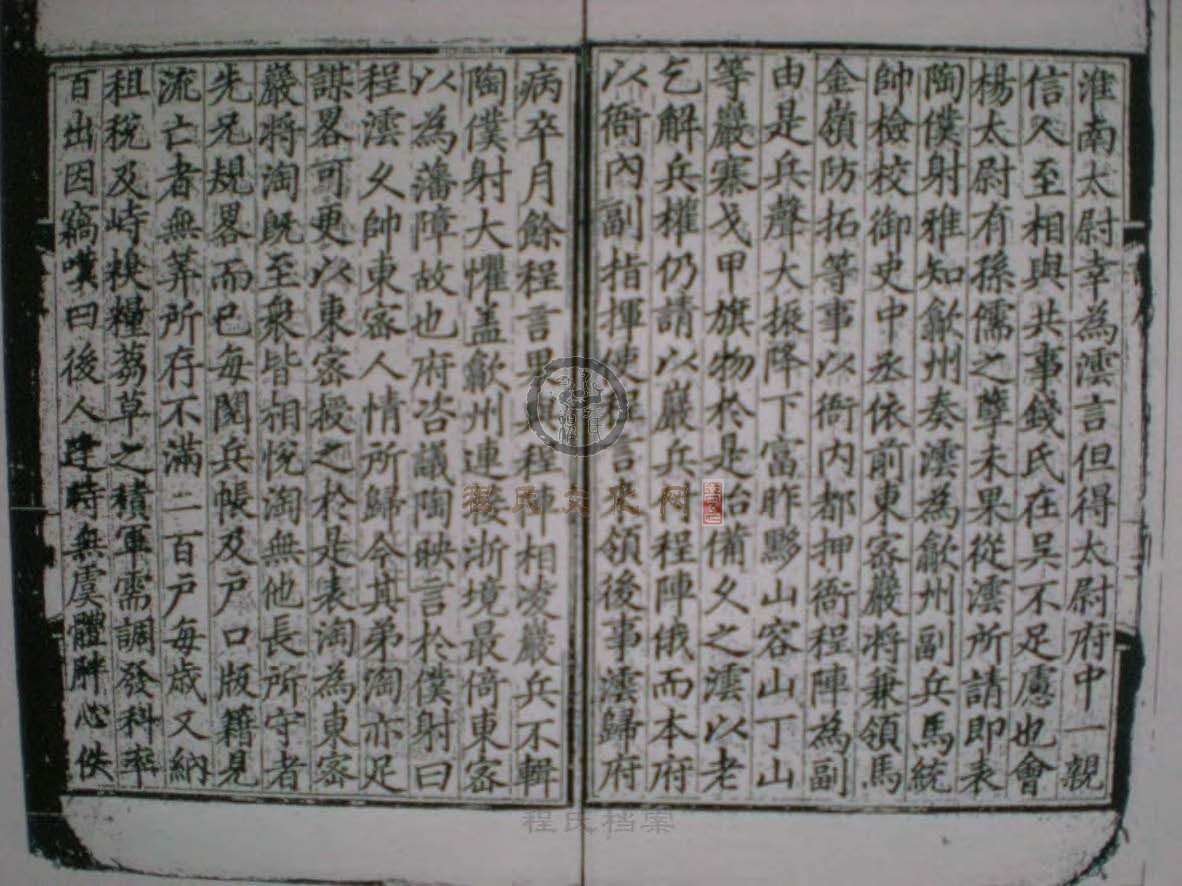 淮南太尉幸為澐言但得太尉府中一親
信人至相與共事錢氏在吴不足慮也會
楊太尉有孫儒之孽未果從澐所請即表
陶僕射雅知歙州奏澐為歙州副兵馬統
帥檢校御史中丞依前東宻巖將兼領馬
金嶺防拓等事以衙内都押衙程陣為副
由是兵聲大振降下富昨黟山容山丁山
等巖寨戈甲旗物於是始備久之澐以老
乞解兵權仍請以巖兵付程陣俄而本府
以衙內副指揮使程言來領後事澐歸府
病卒月餘程言果與程陣相凌巖兵不輯
陶僕射大懼盖歙州連接浙境最倚東宻
以為藩障故也府咨議陶映言於僕射曰
程澐久帥東宻人情所歸今其弟淘亦足
謀畧可更以東宻授之於是表淘為東宻
巖將淘既至衆皆相悅淘無他長所守者
先兄規畧而已每閲兵帳及戸口版籍見
流亡者無筭所存不滿二百戸每歳又納
租稅及峙糗糧芻草之積軍需調發科率
百出因竊嘆曰後人建時無虞體胖心佚
程氏文化网
程氏档案